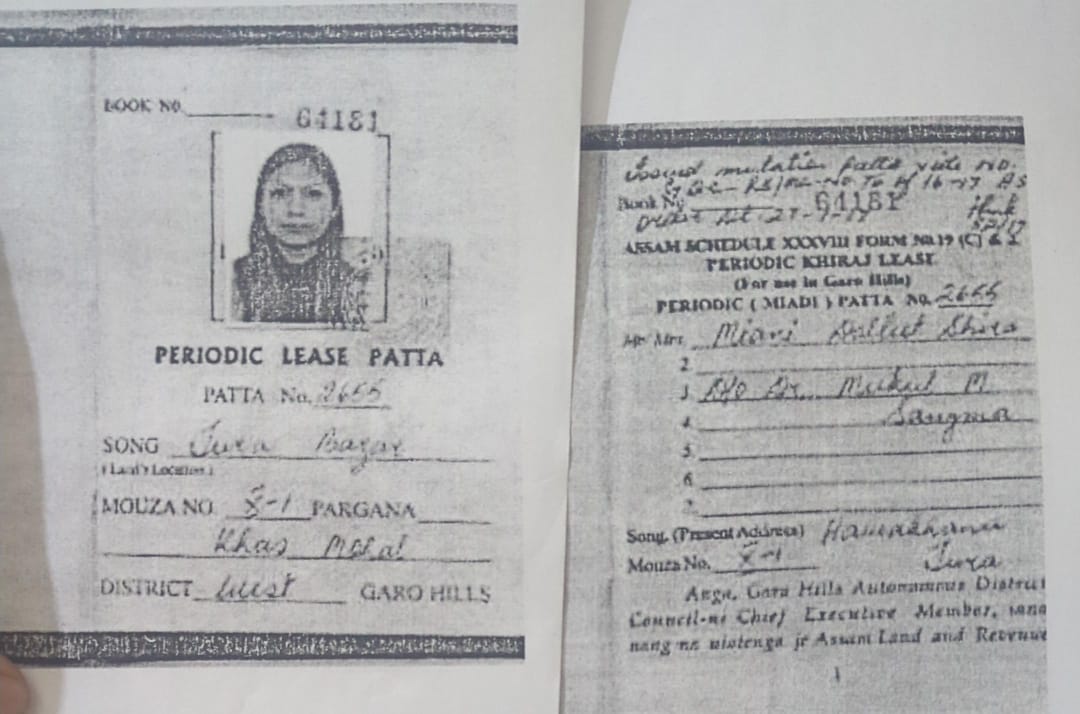 BOOK NO. 64181
PERIODIC LEASE PATTA
PATTA No. 2655
SONG Tura Bazar
(Land's Location)
MOUZA NO. X-1 PARGANA
Khas Mohal
DISTRICT West GARO HILLS
Issued mutation patta vide No.
Book No. 64181
ASSAM SCHEDULE XXXVIII FORM No.19 (C) & I
PERIODIC KHIRAJ LEASE
(For use in Garo Hills)
PERIODIC ( MIADI ) PATTA No. 2655
Mr/Mrs. Miani Shira
2.
3. D/o Dr. Mukul M
4. Sangma
5.
6.
7.
Song. (Present Address)
Mouza No. X-1 Tura
Anga, Garo Hills Autonomous District
Council-ni Chief Executive Member,
nang·na je Assam Land and Revenue
1